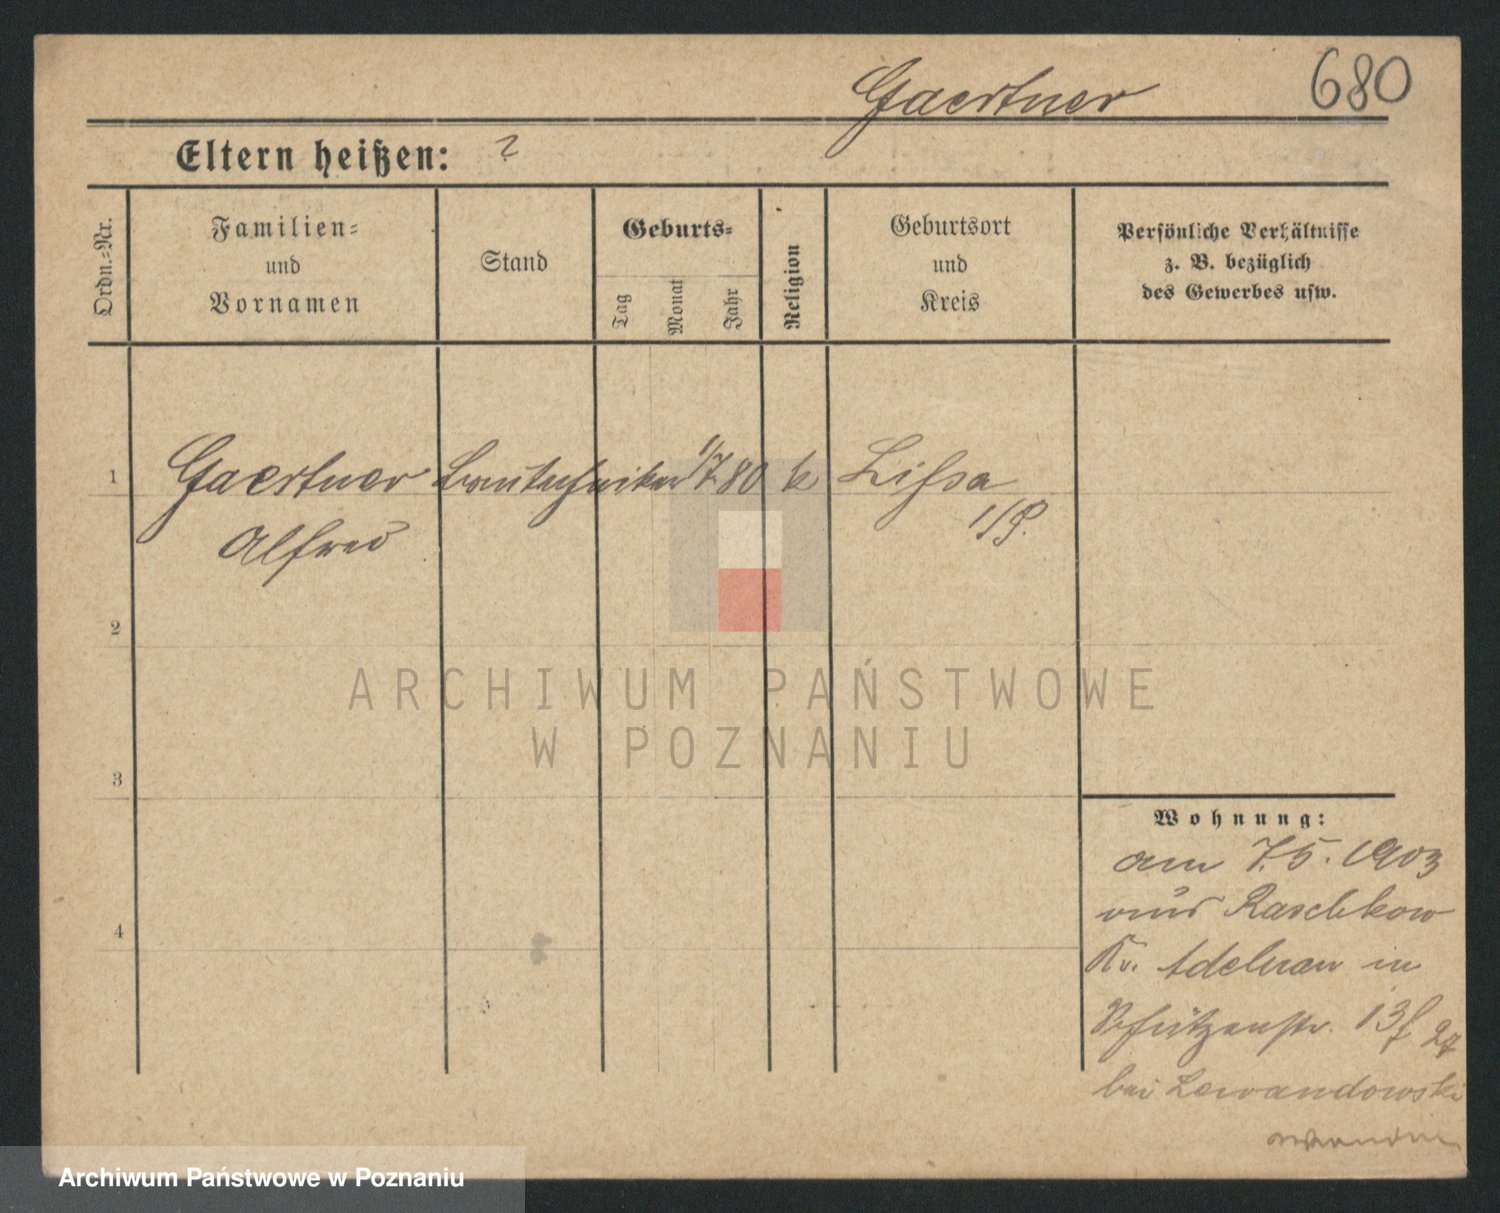 Gaertner
680
Eltern heißen: ?
Ordn.-Nr.
Familien-
und
Vornamen
Stand
Geburts-
Tag
Monat
Jahr
Religion
Geburtsort
und
Kreis
Persönliche Verhältnisse
z. B. bezüglich
des Gewerbes usw.
1
Gaertner Bautechniker 1/7 80 k Lissa
Alfred i/P.
2
ARCHIWUM PAŃSTWOWE
W POZNANIU
3
4
Wohnung:
am 7.5. 1903
aus Raschkow
Kr. Adelnau in
Schützenstr. 13
bei Lewandowski
Archiwum Państwowe w Poznaniu